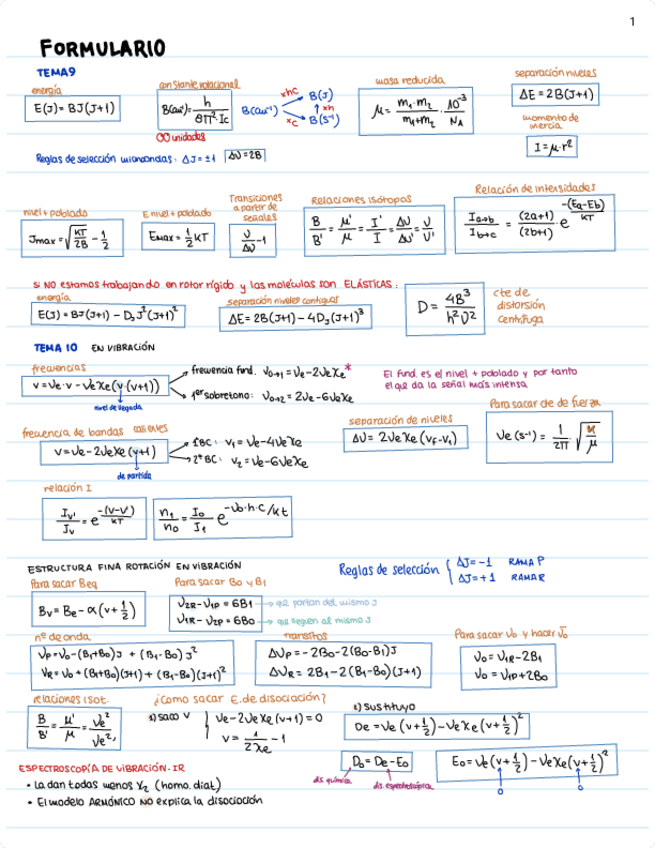 1
FORMULARIO
TEMA9
energía
E(J)= BJ(J+1)
constante rotacional
B(cm⁻¹)= h / 8π²·Ic
OO unidades
B(cm⁻¹)
xhc B(J)
xh
xc B(s⁻¹)
masa reducida
μ = m₁·m₂ / m₁+m₂ · 10⁻³ / NA
separación niveles
ΔE = 2B(J+1)
momento de inercia
I = μ·r²
Reglas de selección microondas: ΔJ = ±1 Δν = 2B
nivel + poblado
Jmax = √(KT / 2B) - 1/2
E nivel + poblado
Emax = 1/2 KT
Transiciones a partir de señales
ν / Δν - 1
Relaciones isótopos
B / B' = μ' / μ = I' / I = Δν / Δν' = ν / ν'
Relación de intensidades
Ia→b / Ib→c = (2a+1) / (2b+1) · e^(-(Ea-Eb) / KT)
si NO estamos trabajando en rotor rígido y las moléculas son ELÁSTICAS:
energía
E(J) = BJ(J+1) - DJ J²(J+1)²
separación niveles contiguos
ΔE = 2B(J+1) - 4DJ(J+1)³
D = 4B³ / h²ν²
cte de distorsión centrífuga
TEMA 10 EN VIBRACIÓN
frecuencias
ν = νe·v - νeXe(v(v+1))
nivel de llegada
frecuencia fund. ν0→1 = νe - 2νeXe*
1er sobretono: ν0→2 = 2νe - 6νeXe
El fund. es el nivel + poblado y por tanto
el que da la señal más intensa
frecuencia de bandas calientes
ν = νe - 2νeXe(v+1)
de partida
1ªBC: ν₁ = νe - 4νeXe
2ªBC: ν₂ = νe - 6νeXe
separación de niveles
Δν = 2νeXe(vf - vi)
Para sacar cte de fuerza
νe(s⁻¹) = 1 / 2π · √(K / μ)
relación I
Iv' / Iv = e^(-(v-v') / KT)
n₁ / n₀ = I₀ / I₁ e^(-ν₀·h·c/kt)
ESTRUCTURA FINA ROTACIÓN EN VIBRACIÓN
Reglas de selección
ΔJ = -1 RAMA P
ΔJ = +1 RAMA R
Para sacar Beq
Bv = Be - α(v + 1/2)
Para sacar B₀ y B₁
ν2R - ν1P = 6B1 → que partan del mismo J
ν1R - ν2P = 6B0 → que lleguen al mismo J
nº de onda
νP = ν₀ - (B₁+B₀)J + (B₁-B₀)J²
νR = ν₀ + (B₁+B₀)(J+1) + (B₁-B₀)(J+1)²
tránsitos
ΔνP = -2B₀ - 2(B₀-B₁)J
ΔνR = 2B₁ - 2(B₁-B₀)(J+1)
Para sacar ν₀ y hacer ν̄₀
ν₀ = ν1R - 2B₁
ν₀ = ν1P + 2B₀
relaciones isot.
B / B' = μ' / μ = νe² / νe²'
¿Como sacar E.de disociación?
1) saco v
νe - 2νeXe(v+1) = 0
v = 1 / 2Xe - 1
2) Sustituyo
De = νe(v + 1/2) - νeXe(v + 1/2)²
D₀ = De - E₀
dis. química
dis. espectroscópica
E₀ = νe(v + 1/2) - νeXe(v + 1/2)²
0
0
ESPECTROSCOPÍA DE VIBRACIÓN-IR
• La dan todas menos X₂ (homo. diat)
• El modelo ARMÓNICO NO explica la disociación